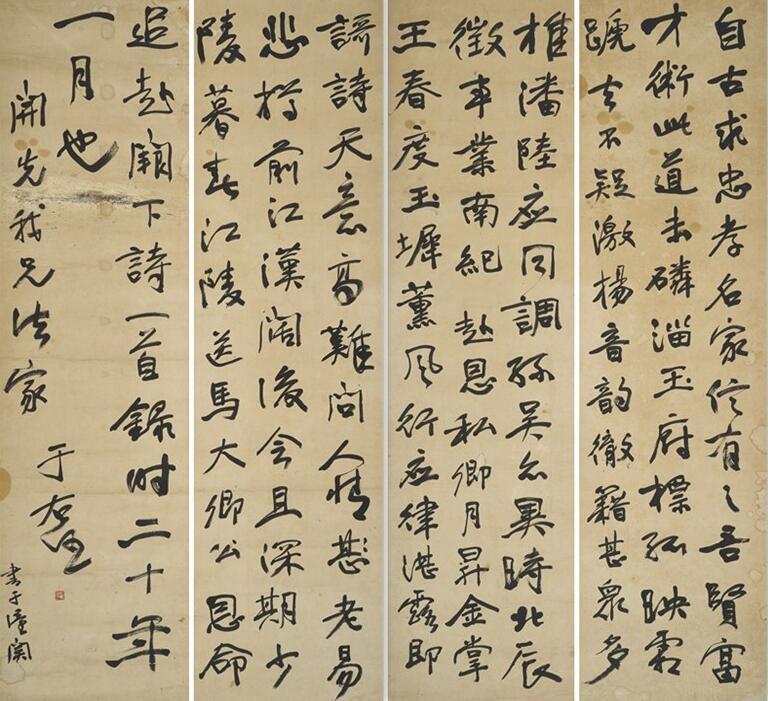 自古求忠孝名家信有之吾賢富
才術此道未磷淄玉府標孤映霜
蹏去不疑激揚音韵徹籍甚眾多
推潘陸應同調孫吳亦異時北辰
徵事業南紀赴恩私卿月昇金掌
王春度玉墀薰風行應律湛露即
謌詩天意高難問人情甚老易
悲樽前江漢闊後會且深期少
陵暮春江陵送馬大卿公恩命
追赴闕下詩一首錄時二十年
一月也
開先我兄法家
于右任
書于潼関